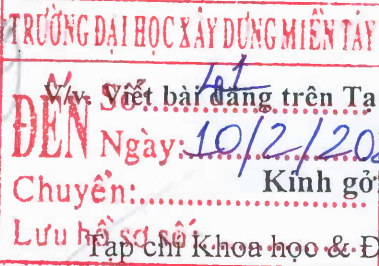 TRƯỜNG ĐẠI HỌC XÂY DỰNG MIỀN TÂY
ĐẾN
Số: 41
V/v. Viết bài đăng trên Tạ
Ngày: 10/2/20
Chuyển:
Kính gở
Lưu hồ sơ số:
Tạp chí Khoa học & Đ